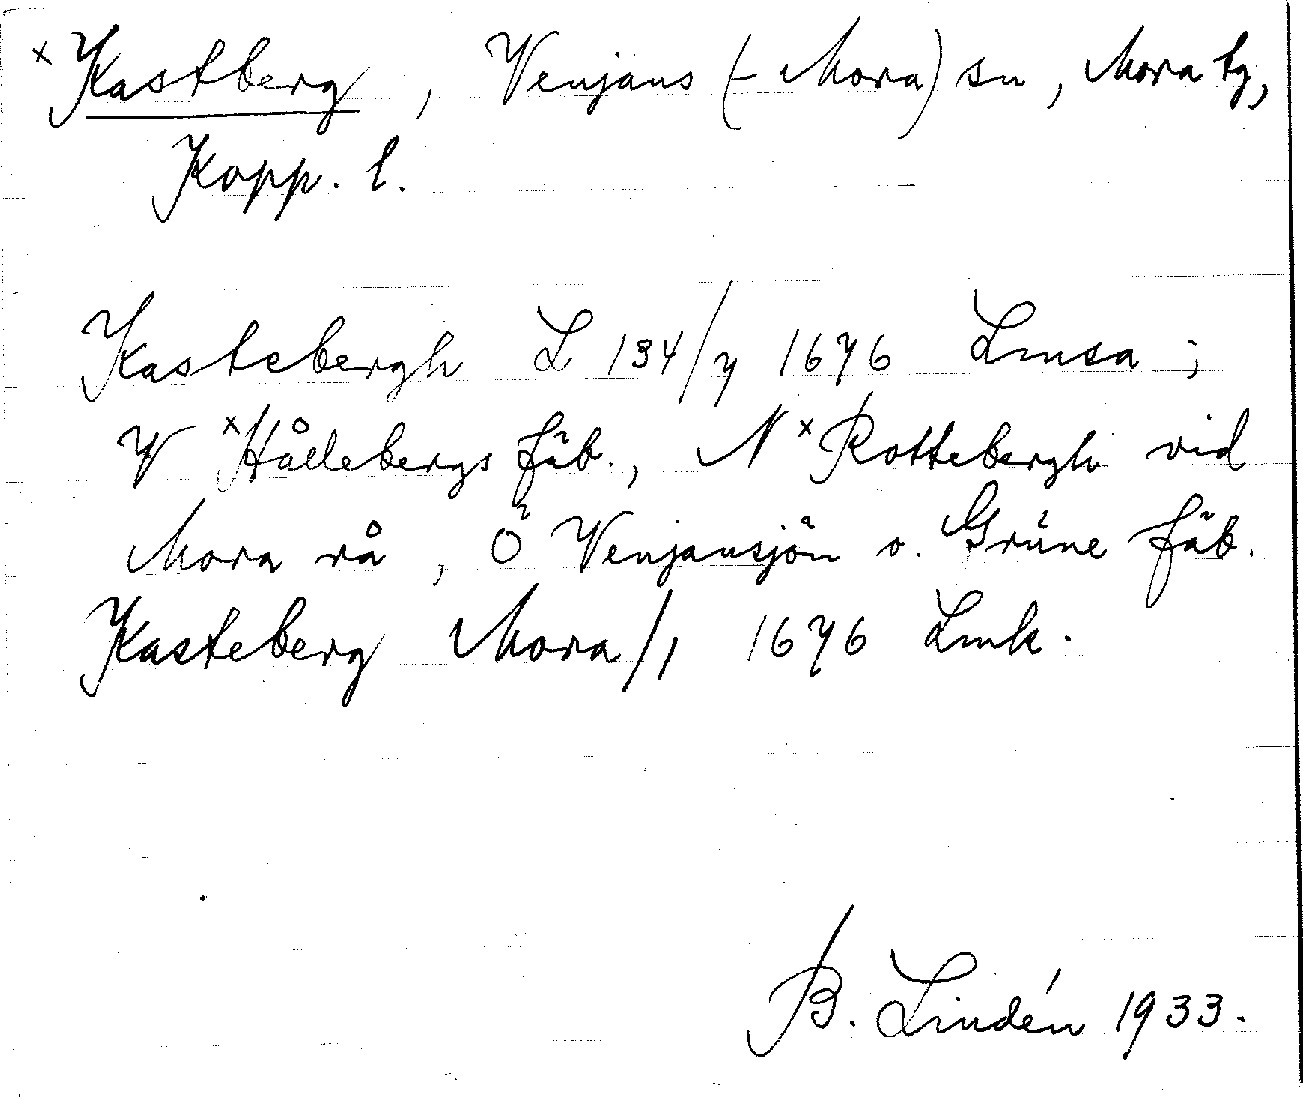 ×Kastberg, Venjans (- Mora) sn, Mora tg,
Kopp. l.
Kastebergh L 134/7 1676 Lmsa;
V ×Hållebergs fäb., N ×Rottebergh vid
Mora rå, Ö Venjansjön o. Gråne fäb.
Kasteberg Mora/1 1676 Lmk.
B. Lindén 1933.